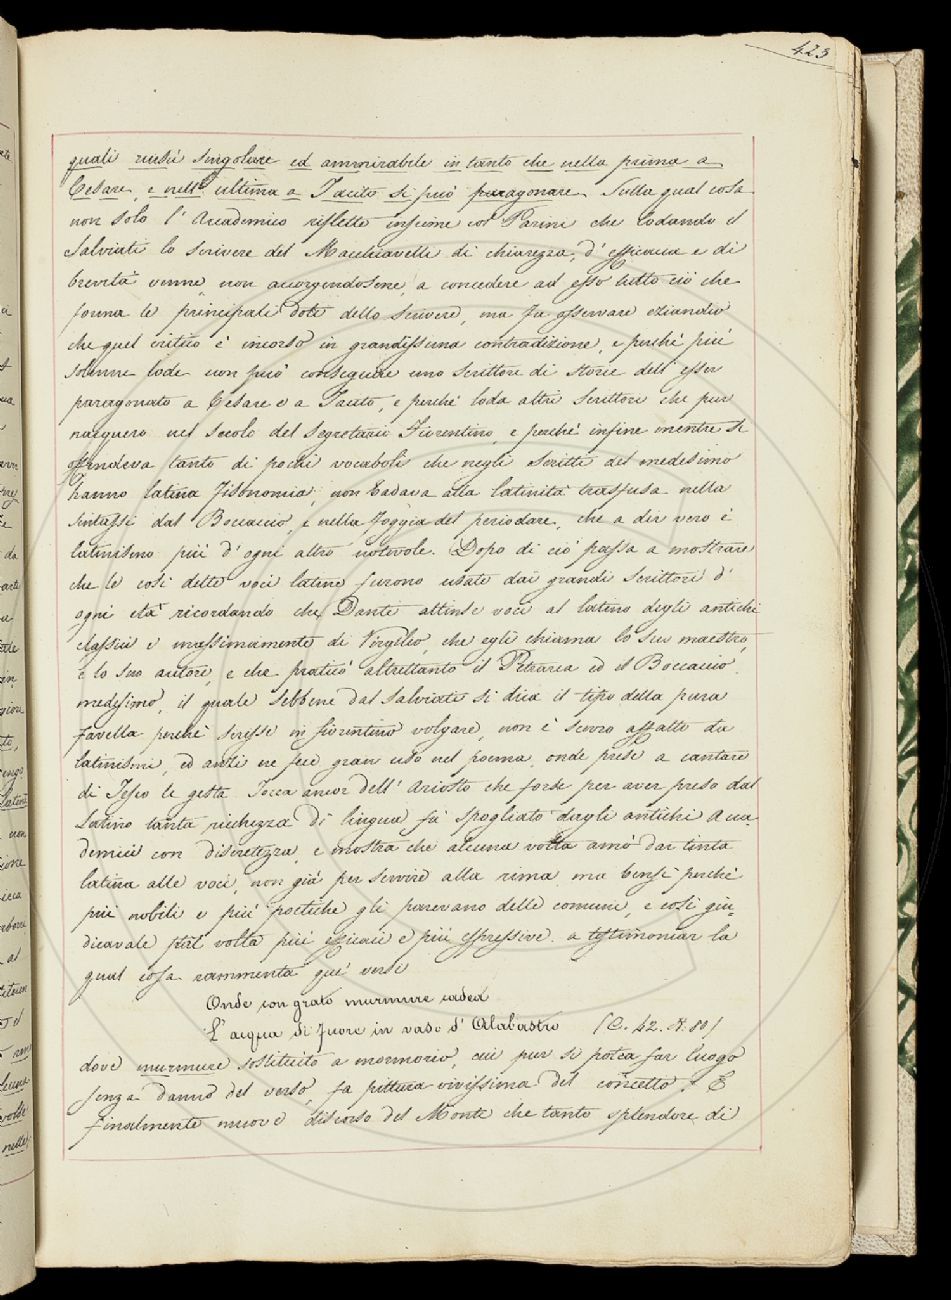 423
quali riuscì singolare ed ammirabile in tanto che nella prima a
Cesare, e nell'ultima a Tacito si può paragonare. Sulla qual cosa
non solo l'Accademico riflette insieme col Parini che lodando il
Salviati lo scrivere del Macchiavelli di chiarezza, d'efficacia e di
brevità venne, non accorgendosene, a concedere ad esso tutto ciò che
forma le principali doti dello scrivere, ma fa osservare eziandio
che quel critico è incorso in grandissima contradizione, e perchè più
solenne lode non può conseguire uno scrittore di storie dell'esser
paragonato a Cesare e a Tacito, e perchè loda altri scrittori che pur
nacquero nel secolo del Segretario Fiorentino, e perchè infine mentre si
offendeva tanto di pochi vocaboli che negli scritti del medesimo
hanno latina fisonomia, non badava alla latinità trasfusa nella
sintassi dal Boccaccio, e nella foggia del periodare, che a dir vero è
latinismo più d'ogni altro notevole. Dopo di ciò passa a mostrare
che le così dette voci latine furono usate dai grandi scrittori d'
ogni età ricordando che Dante attinse voci al latino degli antichi
classici e massimamente di Virgilio, che egli chiama lo suo maestro,
e lo suo autore, e che praticò altrettanto il Petrarca ed il Boccaccio
medesimo, il quale sebbene dal Salviati si dica il tipo della pura
favella perchè scrisse in fiorentino volgare, non è scevro affatto da
latinismi, ed anzi ne fece gran uso nel poema, onde prese a cantare
di Teseo le gesta. Tocca ancor dell'Ariosto che forse per aver preso dal
Latino tanta ricchezza di lingua fu spogliato dagli antichi Acca-
demici con discretezza, e mostra che alcuna volta amò dar tinta
latina alle voci, non già per servire alla rima, ma bensì perchè
più nobili e più poetiche gli parevano delle comuni, e così giu-
dicavale tal volta più efficaci e più espressive. a testimoniar la
qual cosa rammenta quei versi
Onde con grato murmure cadea
L'acqua di fuore in vaso d'Alabastro (C. 42. St. 80)
dove murmure sostituito a mormorio, cui pur si potea far luogo
senza danno del verso, fa pittura vivissima del concetto. E
finalmente muove discorso del Monti che tanto splendore di